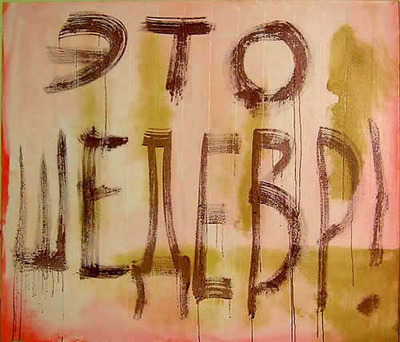 ЭТО
ШЕДЕВР!